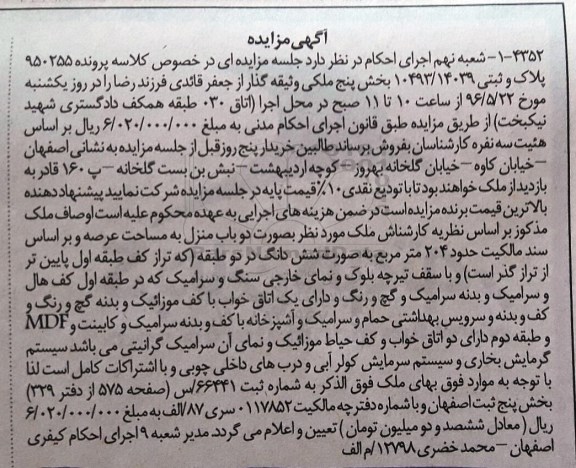 آگهی مزایده
۱-۴۳۵۲- شعبه نهم اجرای احکام در نظر دارد جلسه مزایده ای در خصوص کلاسه پرونده ۹۵۰۲۵۵
پلاک و ثبتی ۱۰۴۹۳/۱۴۰۳۹ بخش پنج ملکی وثیقه گذار از جعفر قائدی فرزند رضا را در روز یکشنبه
مورخ ۹۶/۵/۲۲ از ساعت ۱۰ تا ۱۱ صبح در محل اجرا (اتاق ۰۳۰ طبقه همکف دادگستری شهید
نیکبخت) از طریق مزایده طبق قانون اجرای احکام مدنی به مبلغ ۶/۰۲۰/۰۰۰/۰۰۰ ریال بر اساس
هئیت سه نفره کارشناسان بفروش برساند طالبین خریدار پنج روز قبل از جلسه مزایده به نشانی اصفهان
–خیابان کاوه –خیابان گلخانه بهروز – کوچه اردیبهشت – نبش بن بست گلخانه –پ ۱۶۰ قادر به
بازدید از ملک خواهند بود تا با تودیع نقدی ۱۰٪ قیمت پایه در جلسه مزایده شرکت نمایید پیشنهاد دهنده
بالاترین قیمت برنده مزایده است در ضمن هزینه های اجرایی به عهده محکوم علیه است اوصاف ملک
مذکور بر اساس نظریه کارشناش ملک مورد نظر بصورت دو باب منزل به مساحت عرصه و بر اساس
سند مالکیت حدود ۲۰۴ متر مربع به صورت شش دانگ در دو طبقه (که تراز کف طبقه اول پایین تر
از تراز گذر است) و با سقف تیرچه بلوک و نمای خارجی سنگ و سرامیک که در طبقه اول کف هال
و سرامیک و بدنه سرامیک و گچ و رنگ و دارای یک اتاق خواب با کف موزائیک و بدنه گچ و رنگ و
کف و بدنه و سرویس بهداشتی حمام و سرامیک و آشپزخانه با کف و بدنه سرامیک و کابینت و MDF
و طبقه دوم دارای دو اتاق خواب و کف حیاط موزائیک و نمای آن سرامیک گرانیتی می باشد سیستم
گرمایش بخاری و سیستم سرمایش کولر آبی و درب های داخلی چوبی و با اشتراکات کامل است لذا
با توجه به موارد فوق بهای ملک فوق الذکر به شماره ثبت ۶۶۴۴۱/س (صفحه ۵۷۵ از دفتر ۳۳۹)
بخش پنج ثبت اصفهان و با شماره دفترچه مالکیت ۰۱۱۷۸۵۲ سری ۸۷/الف به مبلغ ۶/۰۲۰/۰۰۰/۰۰۰
ریال ( معادل ششصد و دو میلیون تومان ) تعیین و اعلام می گردد. مدیر شعبه ۹ اجرای احکام کیفری
اصفهان – محمد خضری ۱۳۷۹۸/م الف